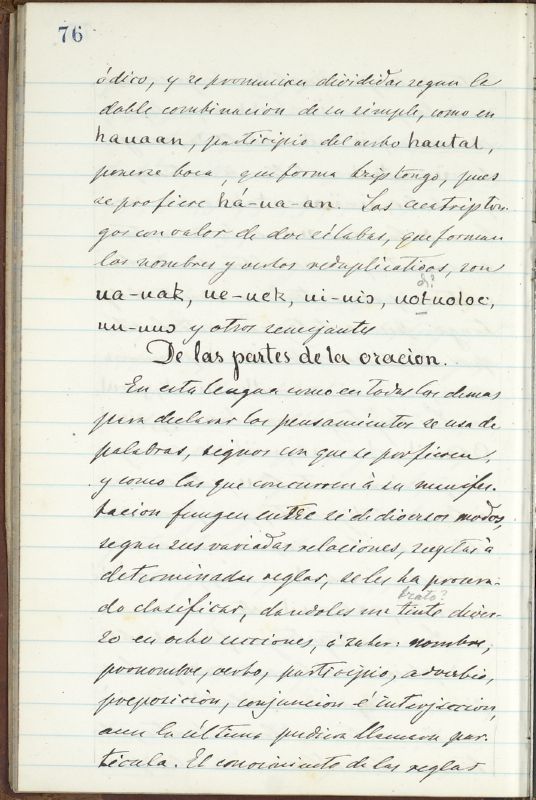 76
ódico, y se pronuncian divididas segun la
doble combinacion de su simple, como en
hauaan, participio del verbo hautal,
ponerse boca, que forma triptongo, pues
se profiere há-ua-an. Los cuatripton-
gos con valor de dos sílabas, que forman
los nombres y verbos reduplicativos, son
ua-uak, ue-uek, ui-uiɔ, uol-uoloc,
uu-uuɔ y otros semejantes
De las partes de la oracion.
En esta lengua como en todas las demas
para declarar los pensamientos se usa de
palabras, signos con que se profieren,
y como las que concurren à su manifes-
tacion fungen entre si de diversos modos,
segun sus variadas relaciones, sugetas à
determinadas reglas, se les ha procura-
trato?
do clasificar, dandoles un tinte diver-
so en ocho secciones, à saber: nombre,
pronombre, verbo, participio, adverbio,
preposicion, conjuncion é interjeccion,
aun la última pudiera llamarse par-
tícula. El conocimiento de las reglas